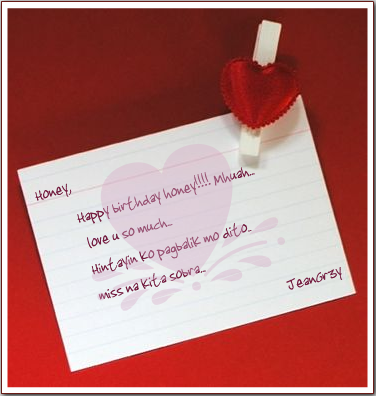 Honey,
Happy birthday honey!!!! Mhuah...
love u so much...
Hintayin ko pagbalik mo dito..
miss na kita sobra...
JeanGr3y